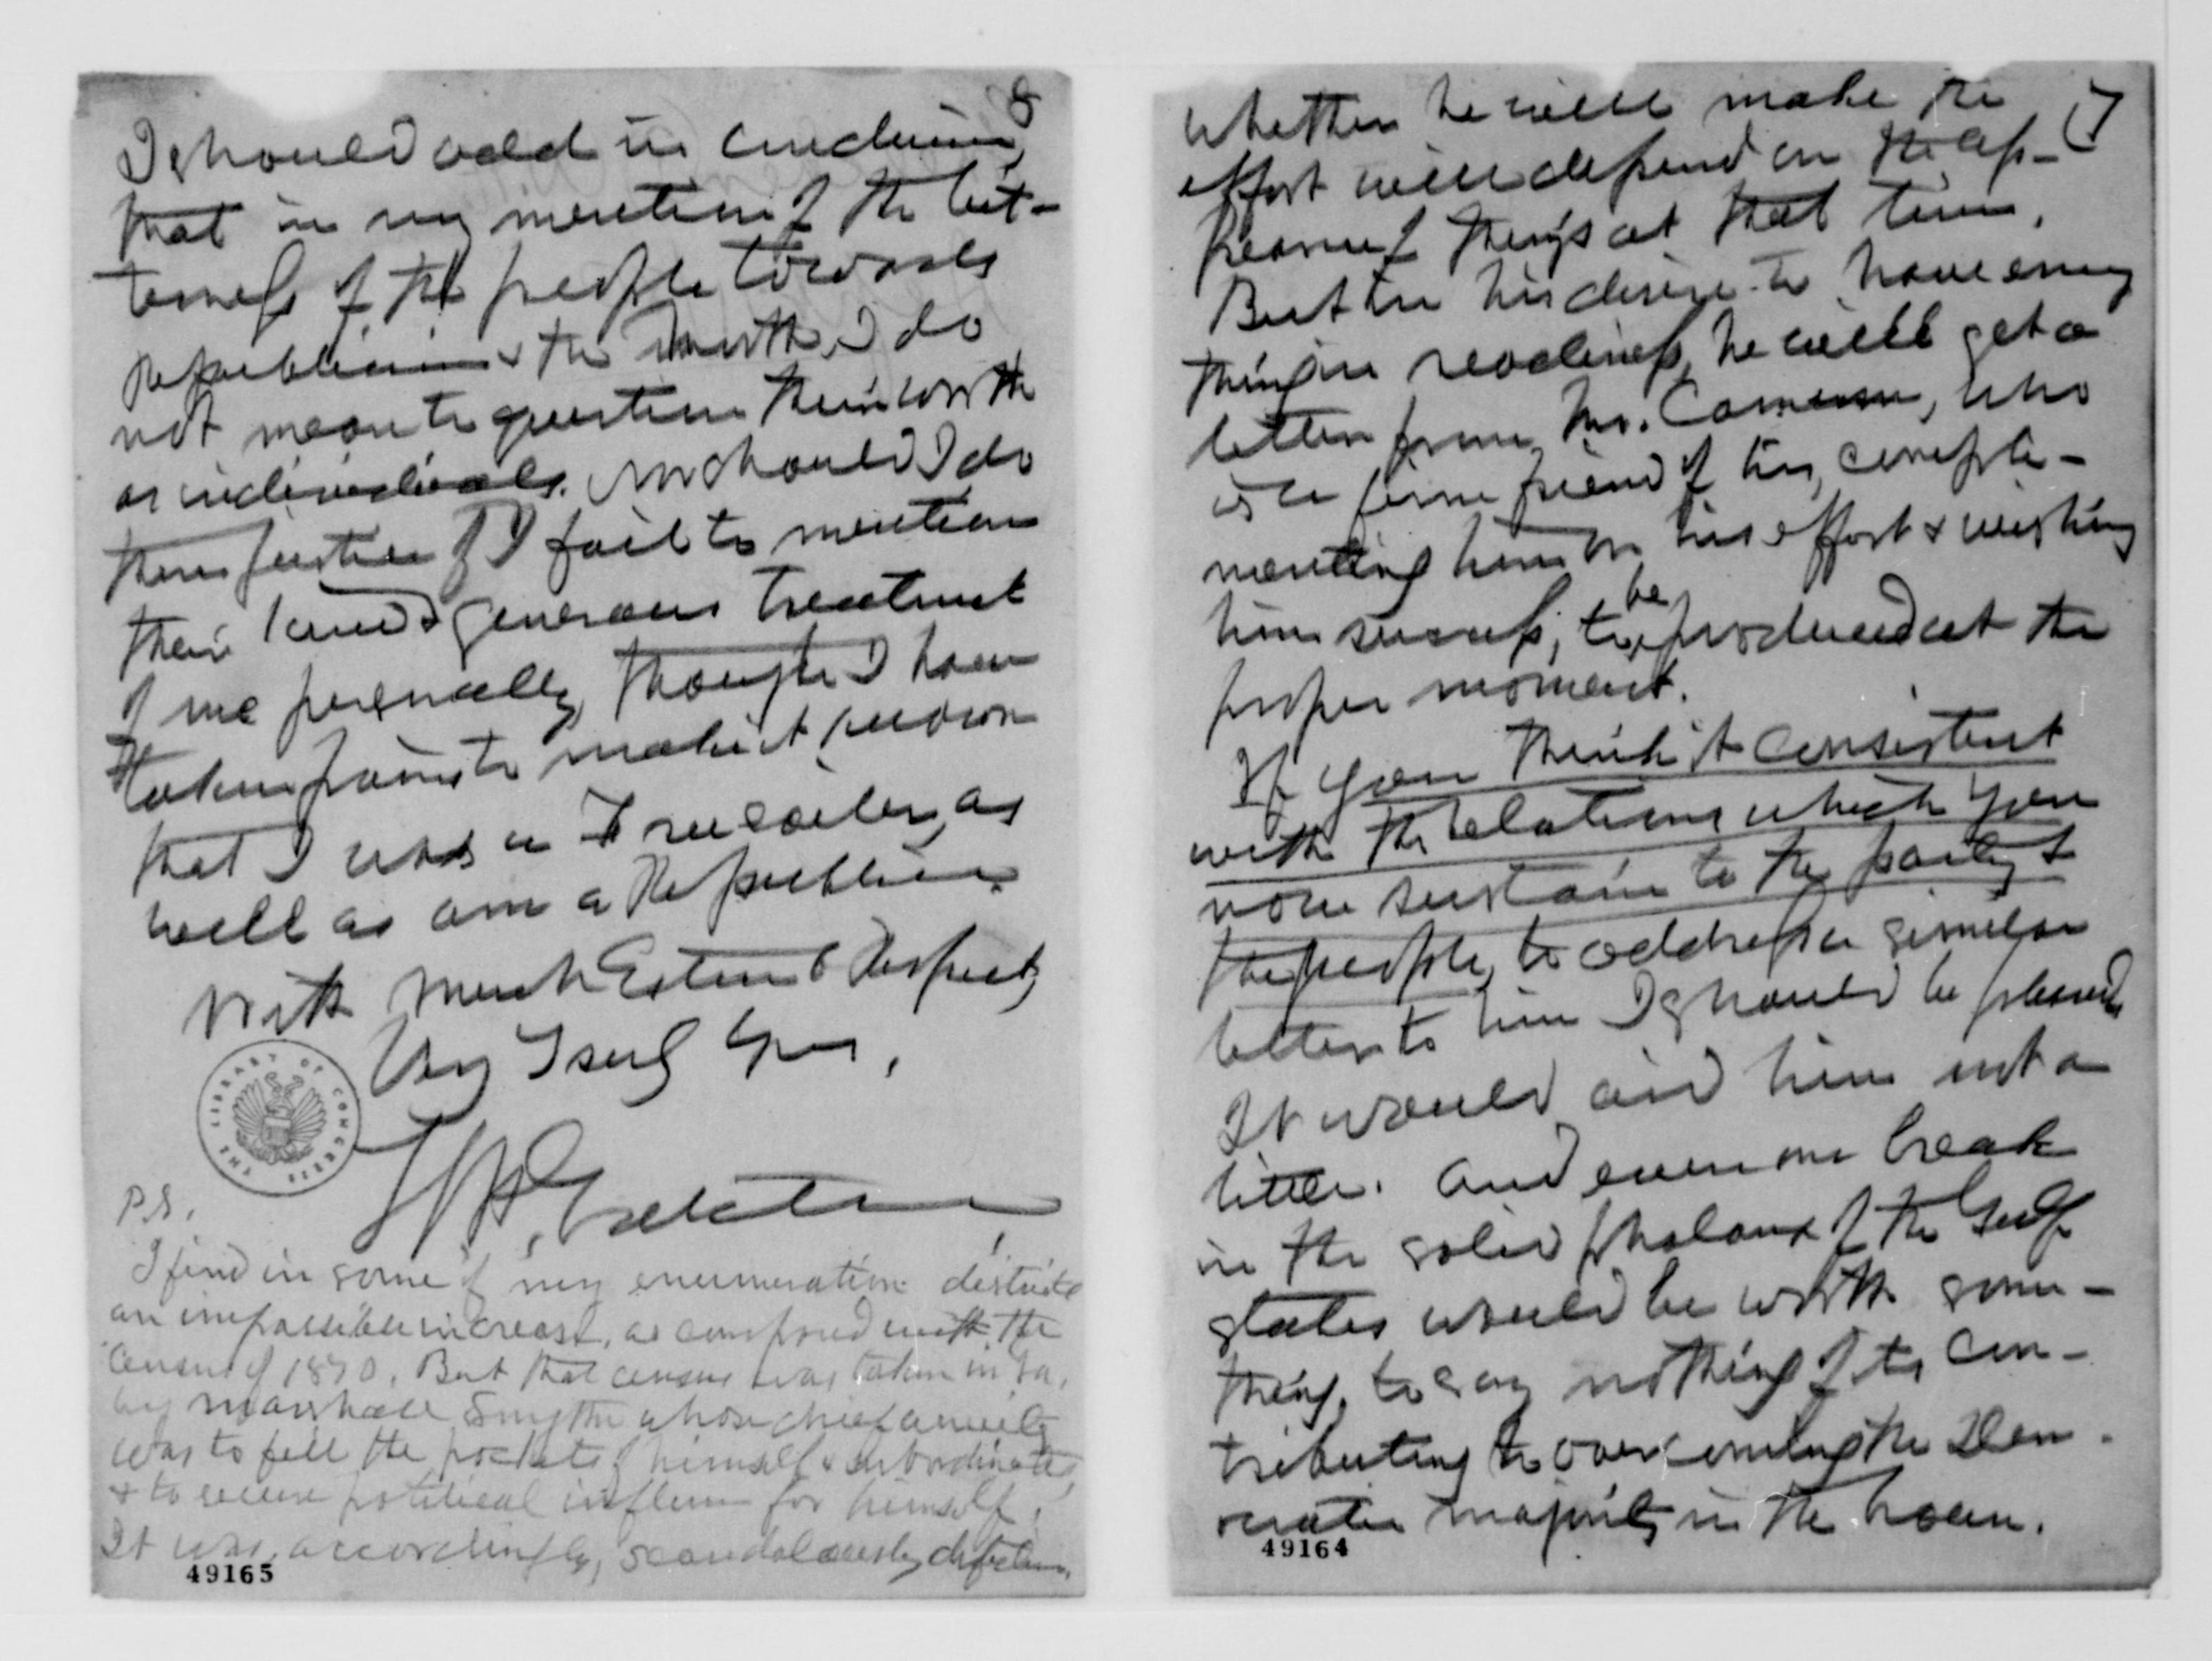 8
I should add in conclusion,
that in my mention of the bit-
terness of the people towards
Republicans & the North, I do
not mean to question their worth
as individuals. Nor should I do
them justice if I fail to mention
their kind & generous treatment
of me personally, though I have
taken pains to make it known
that I was a
well as am a Republican.
With much Esteem & Respect,
Very Truly Yours,
P.S.
I find in some of my enumeration districts
an impossible increase, as compared with the
census of 1870. But that census was taken in Ga.
by Marshall Smythe whose chief anxiety
was to fill the pockets of himself & subordinates
& to secure political influence for himself.
It was, accordingly, scandalously defective.
49165
THE LIBRARY OF CONGRESS
7
whether he will make the
effort will depend on the ap-
pearance of things at that time.
But in his desire to have every
thing in readiness, he will get a
letter from Mr. Cameron, who
is a firm friend of his, compli-
menting him on his effort & wishing
him success, to be produced at the
proper moment.
If you think it consistent
with the relations which you
now sustain to the party &
the people, to address a similar
letter to him I should be pleased
It would aid him not a
little. And even one break
in the solid phalanx of the Gulf
states would be worth some-
thing, to say nothing of its con-
tributing to overcoming the Dem-
ocratic majority in the house.
49164